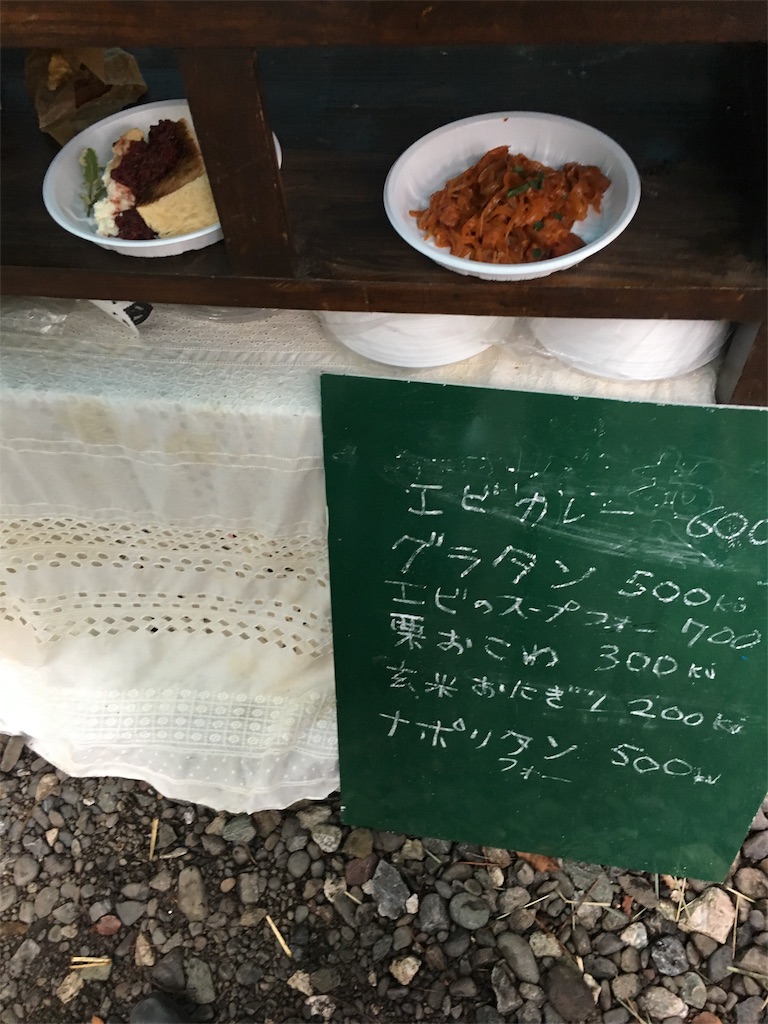 エビカレー 600
グラタン 500kū
エビのスープフォー 700
栗おこわ 300kū
玄米おにぎり 200kū
ナポリタン 500kū
フォー